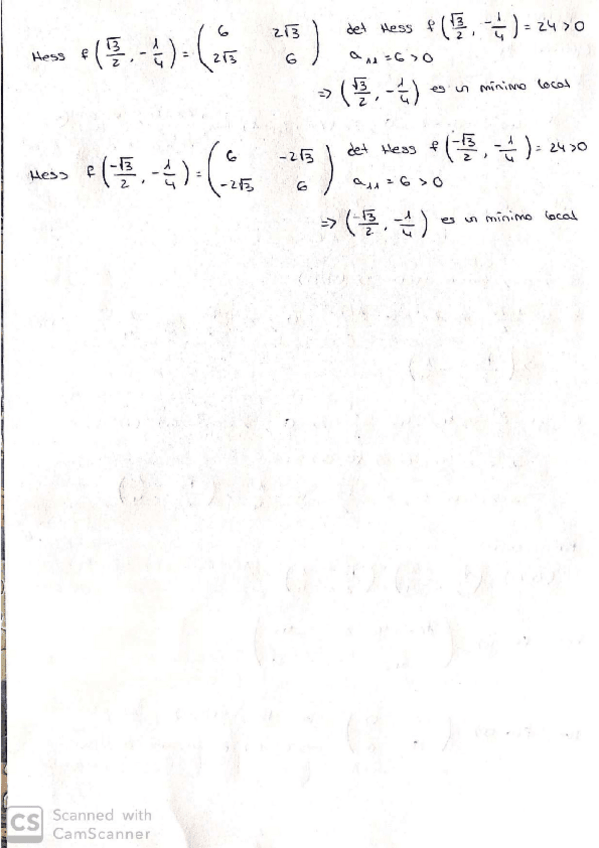 Hess f(√3/2, -1/4) = (6 2√3 ; 2√3 6) det Hess f(√3/2, -1/4) = 24 > 0
a₁₁ = 6 > 0
=> (√3/2, -1/4) es un mínimo local
Hess f(-√3/2, -1/4) = (6 -2√3 ; -2√3 6) det Hess f(-√3/2, -1/4) = 24 > 0
a₁₁ = 6 > 0
=> (-√3/2, -1/4) es un mínimo local
CS Scanned with
CamScanner